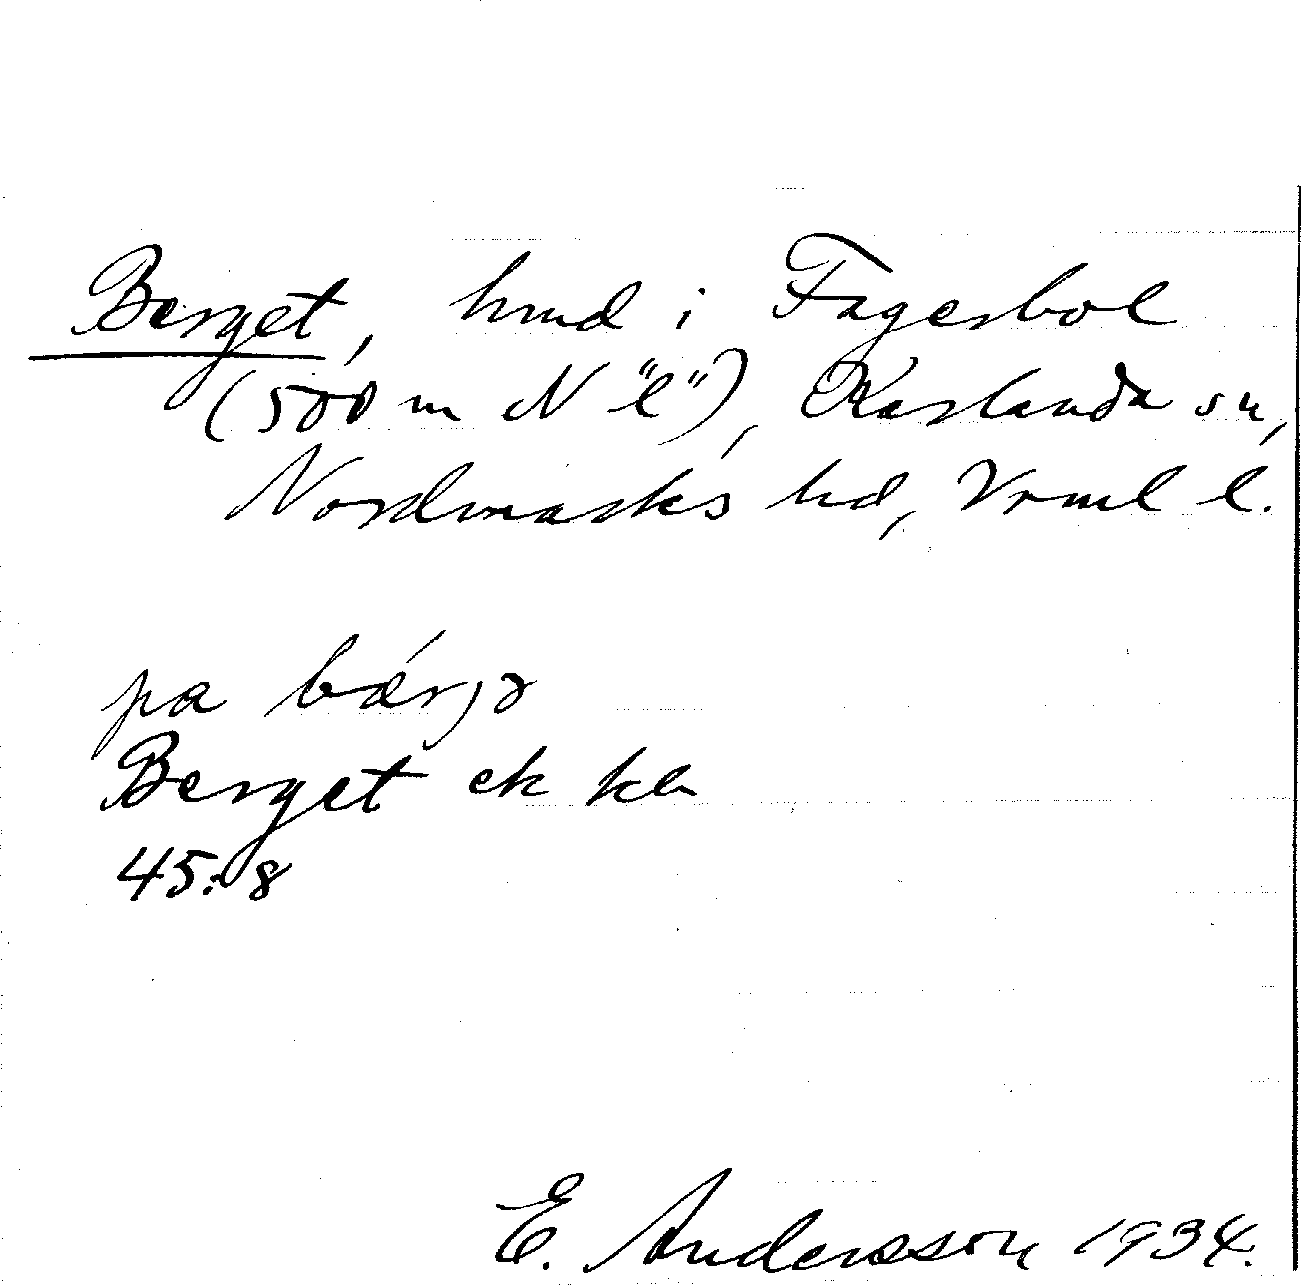 Berget, hmd i Fagerbol
(500 m N "l"), Karlanda sn,
Nordmarks hd, Vrml l.
pa bǽrjə
Berget ek kln
45:8
E. Andersson 1934.